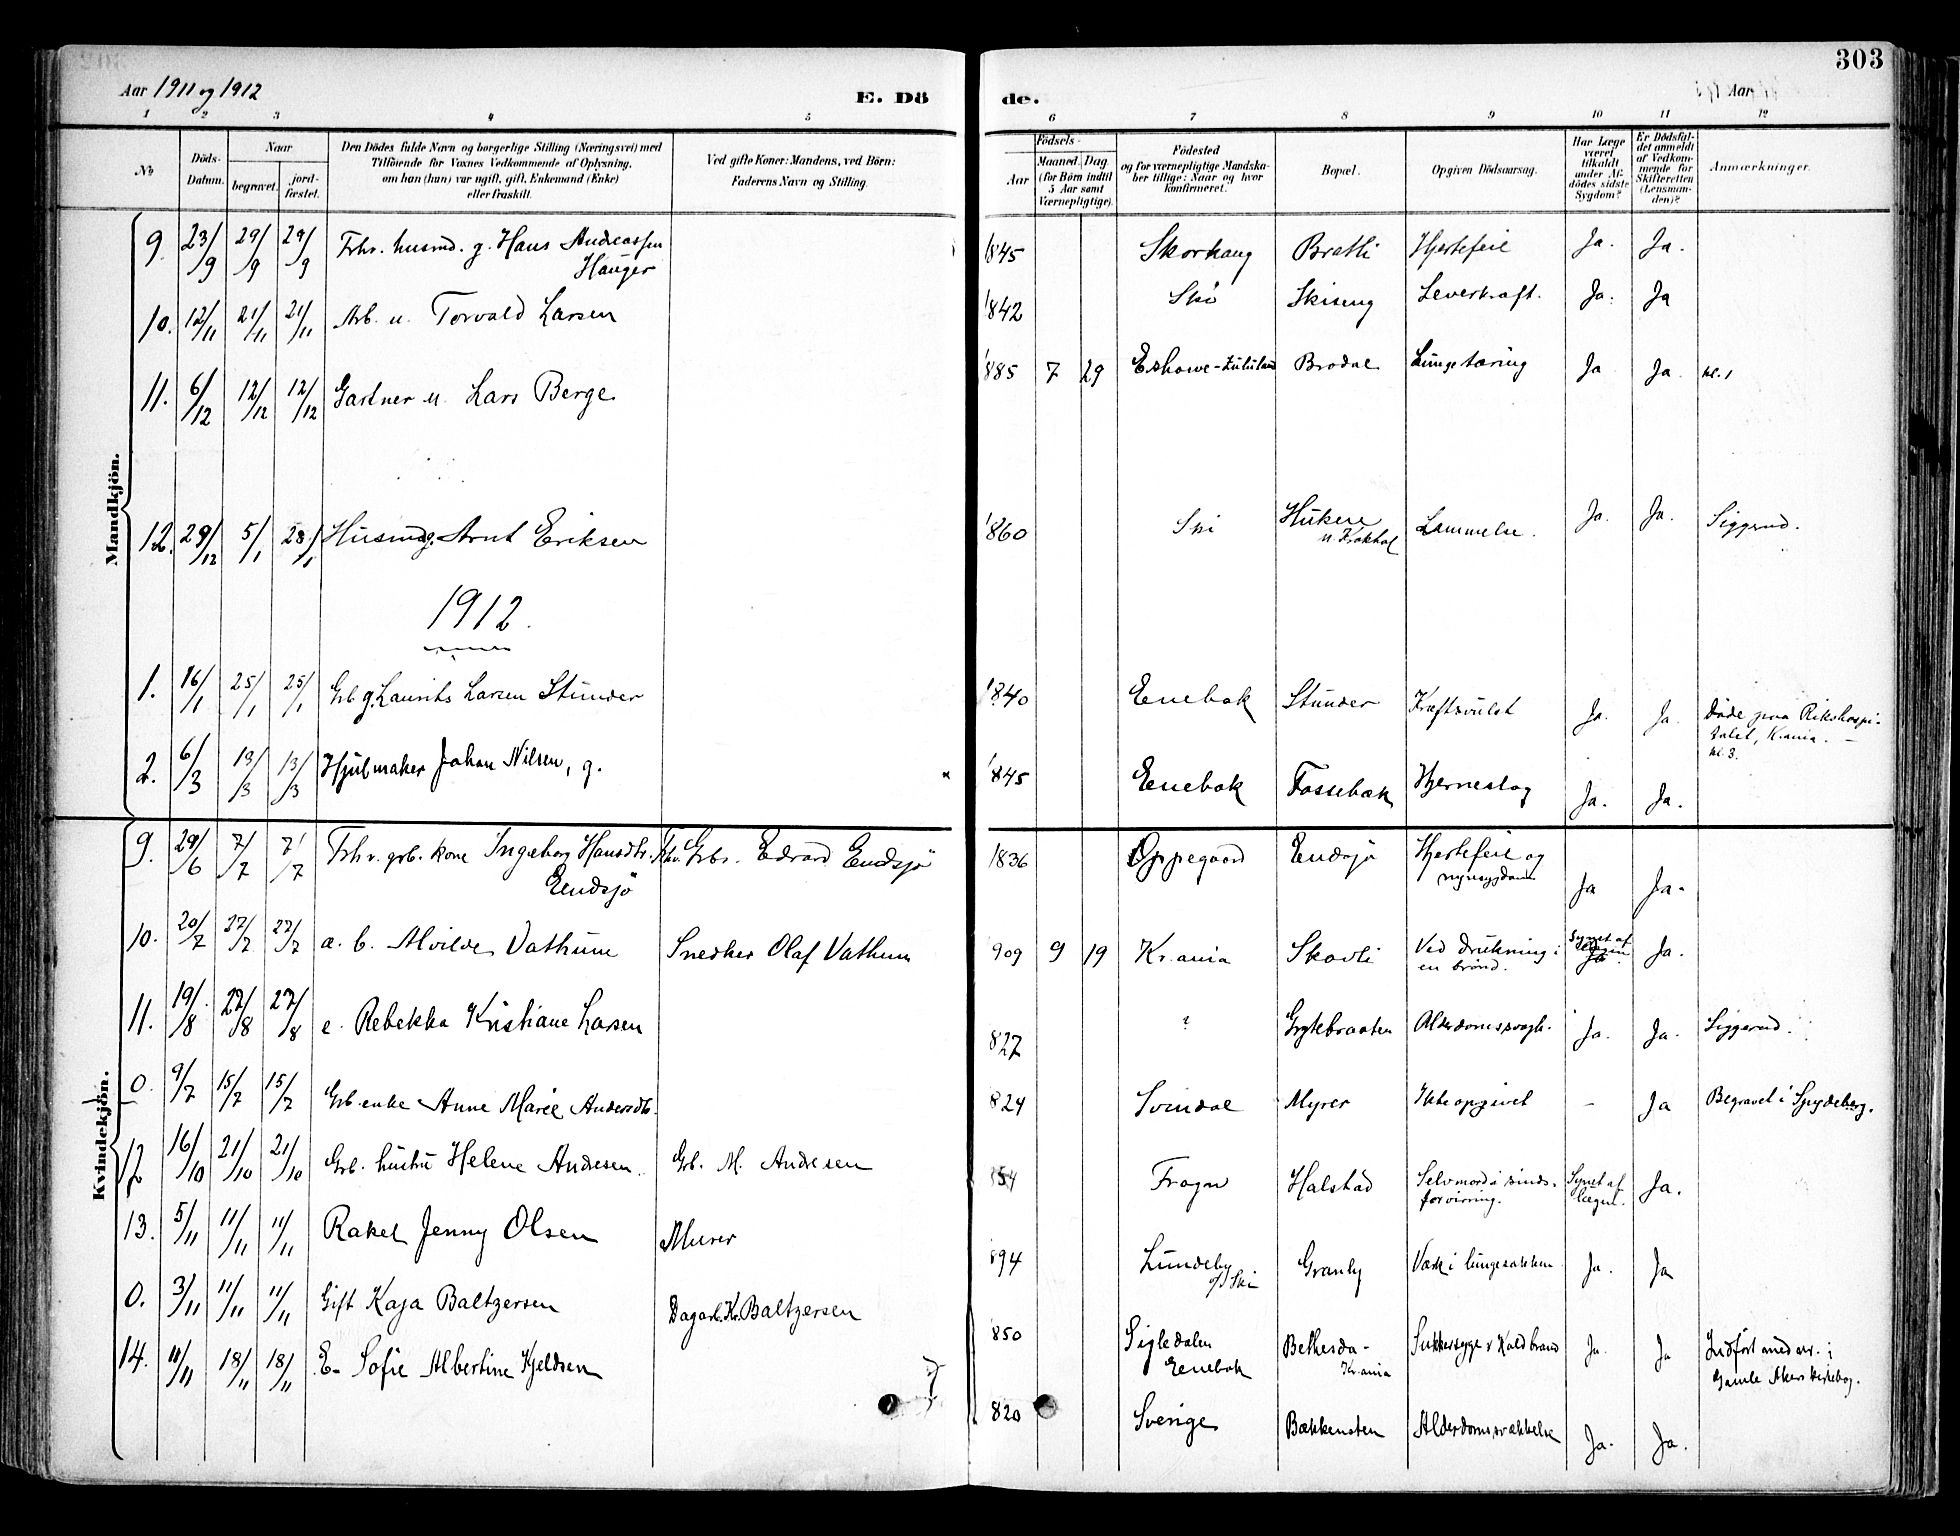 303
Aar 1911 og 1912
E. Dö
de.
Aar
1 2 3 4 5 6 7 8 9 10 11 12
No
Döds-Datum.
Naar
begravet.
jord-fæstet.
Den Dödes fulde Navn og borgerlige Stilling (Næringsvei) med
Tilföiende for Voxnes Vedkommende af Oplysning,
om han (hun) var ugift, gift, Enkemand (Enke)
eller fraskilt.
Ved gifte Koner: Mandens, ved Börn:
Faderens Navn og Stilling.
Födsels-
Aar
Maaned. Dag
(for Börn indtil
5 Aar samt
Værnepligtige).
Födested
og for værnepligtige Mandska-
ber tillige: Naar og hvor
konfirmeret.
Bopæl.
Opgiven Dödsaarsag.
Har Læge
været
tilkaldt
under Af-
dödes sidste
Sygdom?
Er Dödsfal-
det anmeldt
af Vedkom-
mende for
Skifteretten
(Lensman-
den)?
Anmærkninger.
Mandkjön.
9 23/9 29/9 29/9 Fhv. husmd. g. Hans Andreassen 1845 Skorhaug Bratli Hjertefeil Ja. Ja.
Hauger
10. 12/11 21/11 21/11 Arb. u. Torvald Larsen 1842 Ski Skiseng Leverkræft. Ja. Ja
11. 6/12 12/12 12/12 Gartner u. Lars Berge 1885 7 29 Eshowe-Zululand Brodal Lungetæring Ja Ja. kl. 1
12. 29/12 5/1 28/1 Husmd g. Arnt Eriksen 1860 Ski Hukere Lammelse. Ja. Ja. Siggerud.
1912.
1. 16/1 25/1 25/1 Grb g. Laurits Larsen Stunder 1840 Enebak Stunder Kræftsvulst Ja. Ja. Döde paa Rikshospi-
talet, K.ania. –
kl. 3.
2. 6/3 13/3 13/3 Hjulmaker Johan Nilsen, g. 1845 Enebak Fossebæk Hjerneslag Ja. Ja.
Kvindekjön.
9. 29/6 7/7 7/7 Fhv. grb. kone Ingeborg Hansdtr. Fhv. Grbr. Edvard Endsjö 1836 Oppegaard Endsjö Hjertefeil og
Endsjö nyresygdom Ja Ja.
10. 20/7 27/7 27/7 a. b. Alvilde Vathum Snedker Olaf Vathum 909 9 19 Kr.ania Skovli Ved drukning i
en brönd. Synet af
lægen Ja.
11. 19/8 27/8 27/8 e. Rebekka Kristiane Larsen 827 ? Grytebraaten Alderdomssvagh. Ja. Ja. Siggerud.
0. 9/7 15/7 15/7 Grb. enke Anne Marie Andersdtr. 824 Svindal Myrer Ikke opgivet – Ja Begravet i Spydeberg.
12 16/10 21/10 21/10 Grb. hustru Helene Andresen. Grb. M. Andresen 854 Frogn Halstad Selvmord i sinds-
forvirring. Synet af
lægen. Ja.
13. 5/11 11/11 11/11 Rakel Jenny Olsen Murer 894 Lundeby
p/ Ski Granly Værk i lungesækken Ja. Ja
0. 3/11 11/11 11/11 Gift Kaja Baltzersen Dagarb. Kr. Baltzersen 850 Sigledalen
Enebak Bethesda-
Kr.ania Sukkersyge & Koldbrand Ja. Ja Indfört med nr. i
Gamle Akers kirkebog.
14. 11/11 18/11 18/11 E- Sofie Albertine Kjeldsen 820 Sverige Bækkensten Alderdomssvækkelse Ja. Ja.